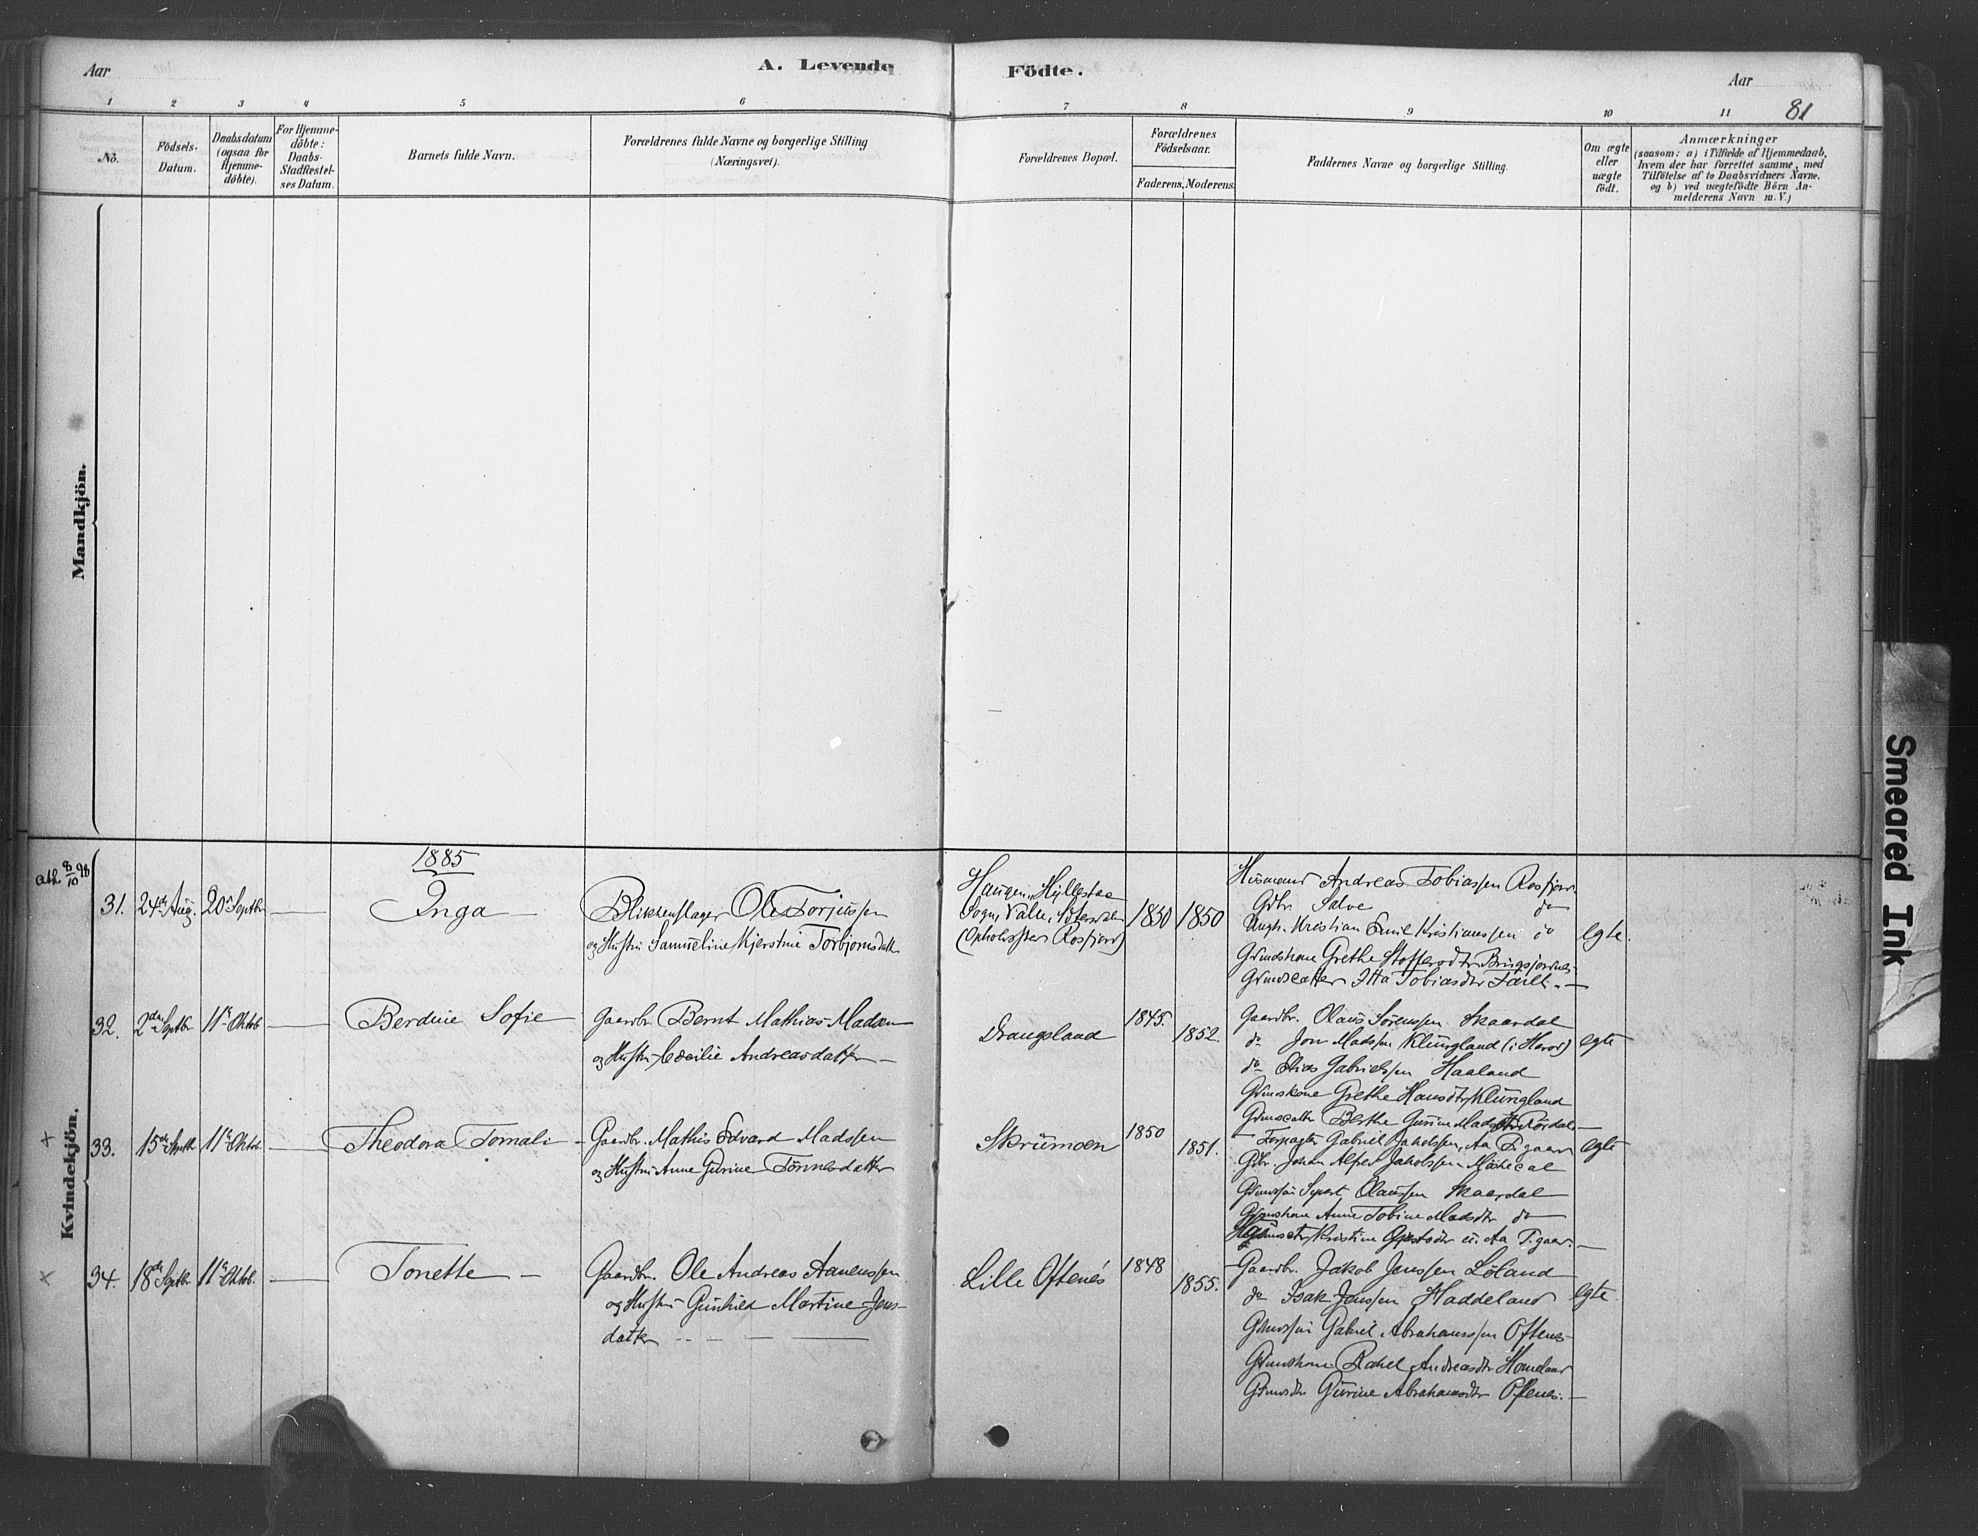 Aar
A. Levende
Födte.
Aar
81
1 2 3 4 5 6 7 8 9 10 11
No.
Födsels-
Datum.
Daabsdatum
(ogsaa for
Hjemme-
döbte).
For Hjemme-
döbte:
Daabs-
Stadfæstel-
ses Datum.
Barnets fulde Navn.
Forældrenes fulde Navne og borgerlige Stilling
(Næringsvei).
Forældrenes Bopæl.
Forældrenes
Födselsaar.
Faderens. Moderens.
Faddernes Navne og borgerlige Stilling.
Om ægte
eller
uægte
födt.
Anmærkninger
(saasom: a) i Tilfælde af Hjemmedaab,
hvem der har forrettet samme, med
Tilföielse af to Daabsvidners Navne.
og b) ved uægtefödte Börn An-
melderens Navn m. V.)
Mandkjön.
Kvindekjön.
1885
31. 24de Aug. 20de Septbr. — Inga —
Blikkenslager Ole Torjussen
og Hustru Samueline Kjerstine Torbjornsdatt
Haugen, Hyllestad
Sogn, Valle, Sætersdalen
(Opholdssted Rosfjord)
1850 1850
Husmand Andreas Tobiassen Rosfjord
Gdbr. Salve do
Ungk. Kristian Emil Kristianssen do
Gdmdskone Grethe Stoffersdtr Bringsjordnes
Gdmdsdatter Itta Tobiasdtr
egte.
32. 2den Septbr. 11te Oktob. — Berdine Sofie
Gaardbr. Bernt Mathias Madsen
og Hustru Cæcilie Andreasdatter —
Drangsland
1845. 1852.
Gaardbr. Olaus Sörenssen Skaardal
do Jon Madssen Klungland (i Herod)
do Elias Gabrielssen Haaland
Gdmdskone Grethe Hansdtr Klungland
Gdmdsdatter Berthe Gurine Madsdtr
egte
33. 15de Septbr 11te Oktob. — Theodora Tomali —
Gaardbr. Mathis Edvard Madssen
og Hustru Anne Gurine Tönnesdatter
Skrumoen
1850 1851.
Forpagter Gabriel Jakobssen, Aa P.gaard
Gdbr. Johan Alfred Jakobssen
Gdmdssön Sivert Olaussen Skaardal
Gdmdskone Anne Tobine Madsdtr do
Kristine
egte
34. 18de Septbr 11te Oktob. — Tonette —
Gaardbr. Ole Andreas Aanenssen
og Hustru Gunhild Martine Jens-
datter
Lille Oftenes
1848 1855.
Gaardbr. Jakob Jenssen Löland
do Isak Jenssen Haddeland
Gdmdssön Gabriel Abrahamssen Oftenes
Gdmdskone Rakel Andreasdtr
Gdmdsdtr Gurine Abrahamsdtr Oftenes. —
egte.
Smeared Ink